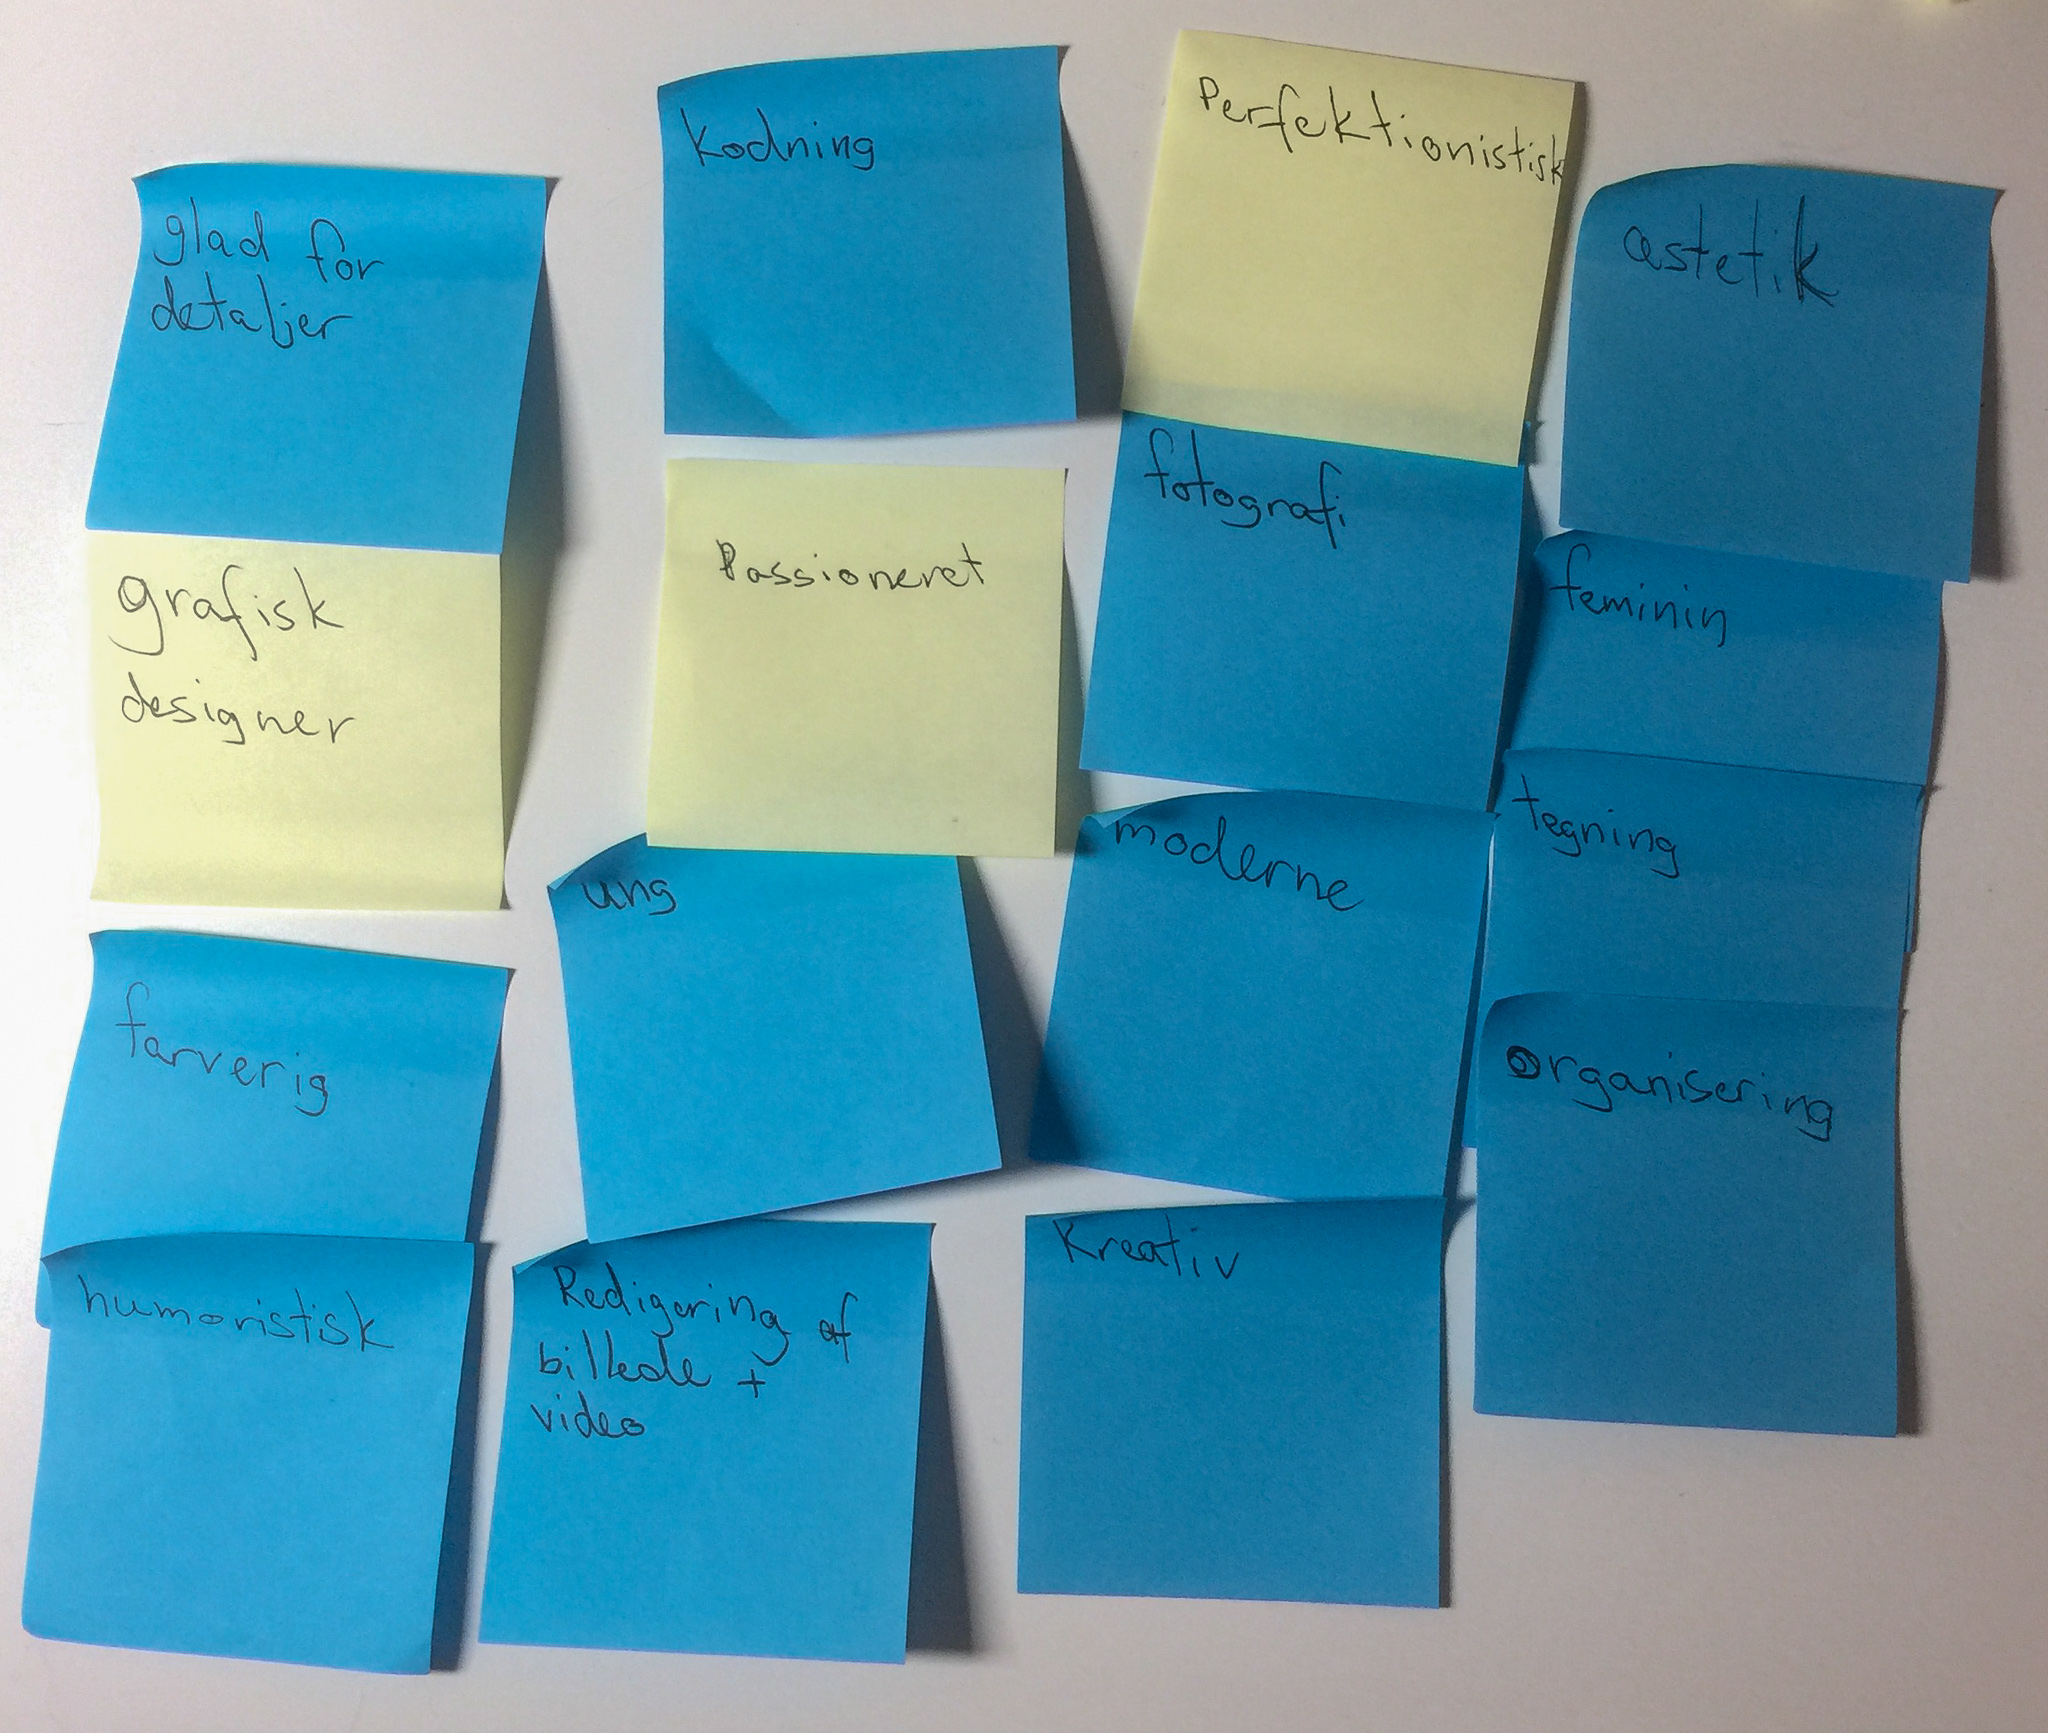 glad for
detaljer
grafisk
designer
farverig
humoristisk
Kodning
Passioneret
ung
Redigering af
billede +
video
Perfektionistisk
fotografi
moderne
Kreativ
æstetik
feminin
tegning
organisering